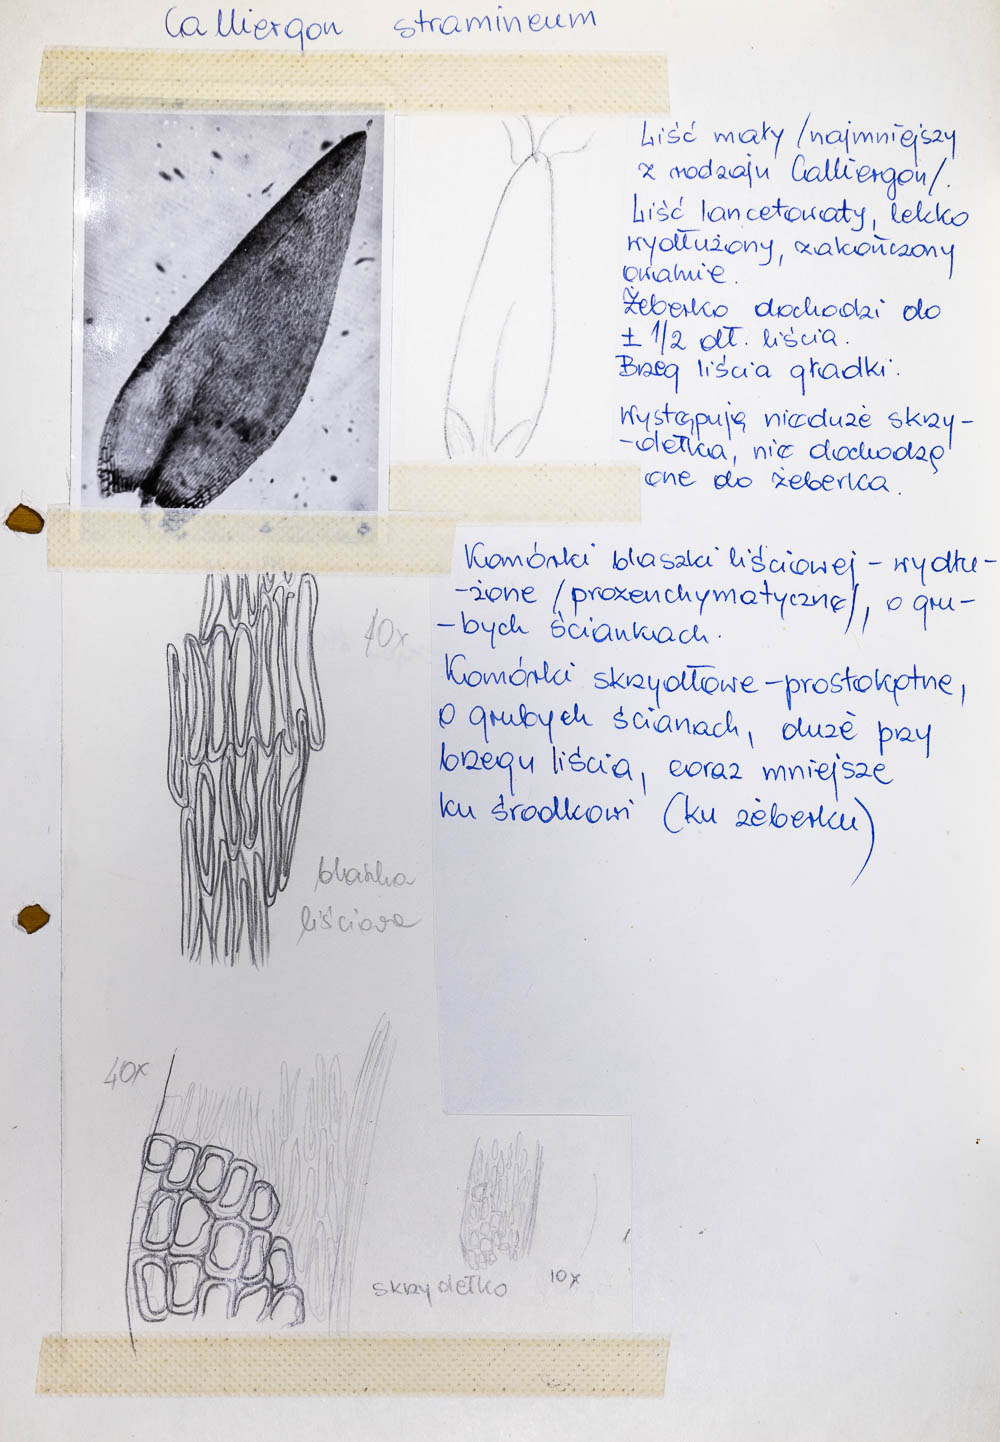 Calliergon stramineum
Liść mały /najmniejszy
z rodzaju Calliergon/.
Liść lancetowaty, lekko
wydłużony, zakończony
owalnie.
Żeberko dochodzi do
± 1/2 dł. liścia.
Brzeg liścia gładki.
Występują nieduże skrzy-
-dełka, nie dochodzą
one do żeberka.
Komórki blaszki liściowej - wydłu-
-żone /prozenchymatyczne/, o gru-
-bych ściankach.
Komórki skrzydłowe - prostokątne,
o grubych ścianach, duże przy
brzegu liścia, coraz mniejsze
ku środkowi (ku żeberku)
40x
blaszka
liściowa
40x
skrzydełko 10x